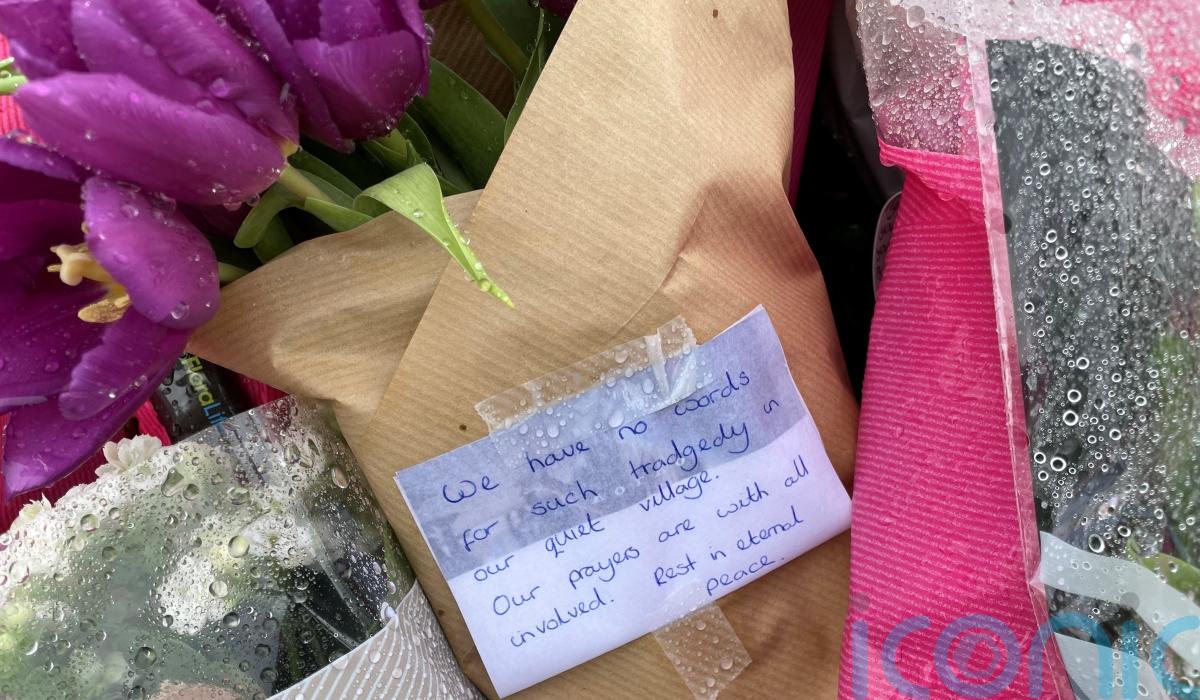 FloraLi
We have no words
for such tradgedy in
our quiet village.
Our prayers are with all
involved. Rest in eternal
peace.
iconic